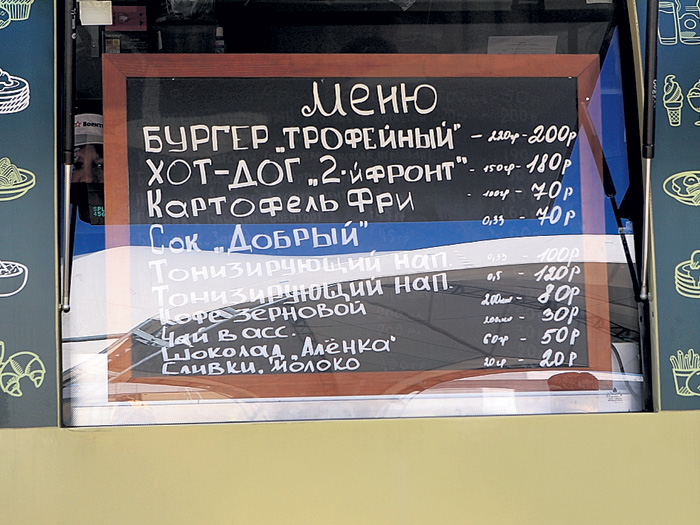 Меню
БУРГЕР „ТРОФЕЙНЫЙ" - 220гр - 200р
ХОТ-ДОГ „2-й ФРОНТ" - 150гр - 180р
Картофель Фри - 100гр - 70р
Сок „Добрый" 0,33 - 70р
Тонизирующий нап. 0,33 - 100р
Тонизирующий нап. 0,5 - 120р
Кофе зерновой 200мл - 80р
Чай в асс. - 30р
Шоколад „Алёнка" 60гр - 50р
Сливки, молоко 20гр - 20р